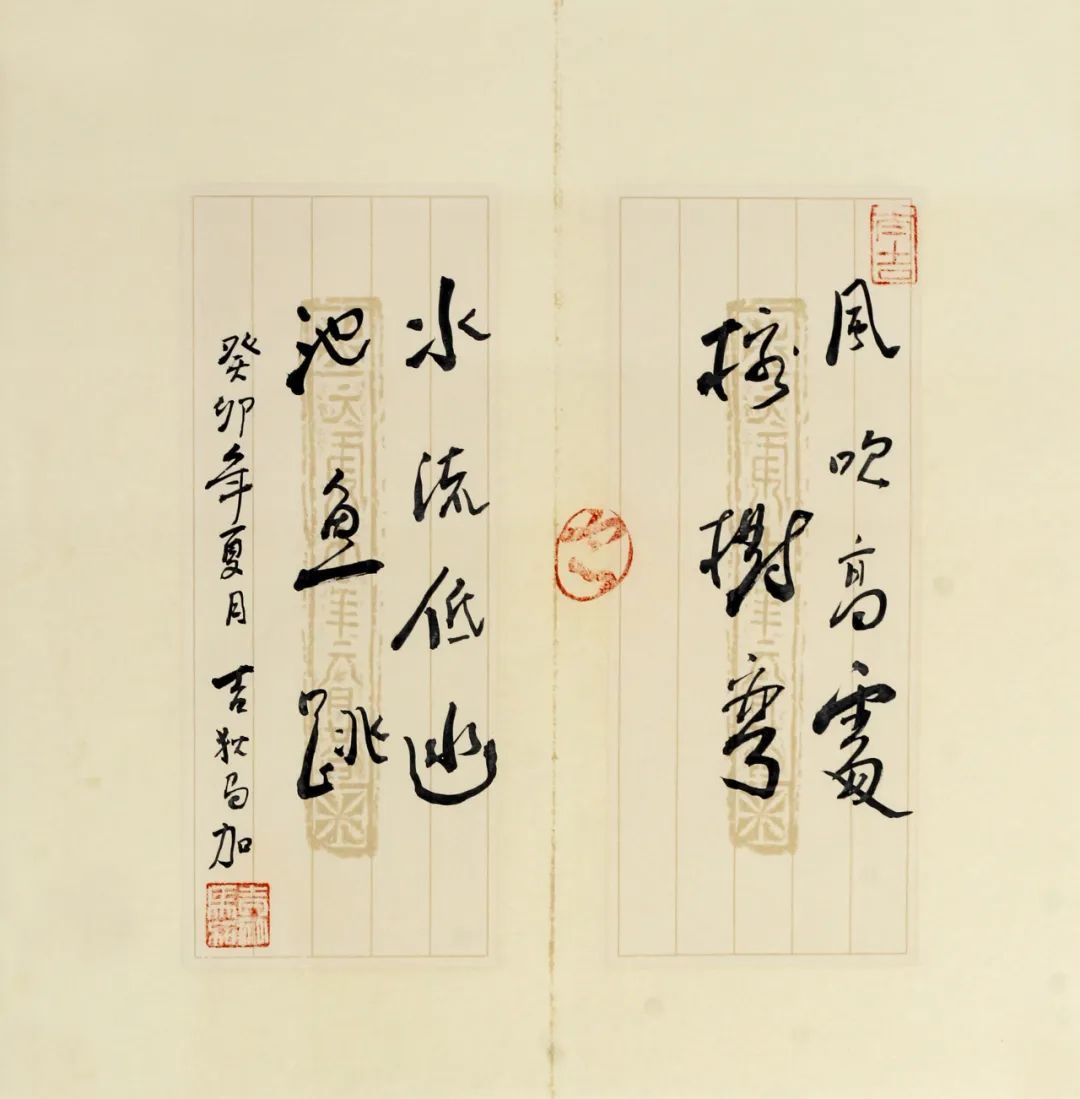 風吹高處
核樹彎
水流低凼
池鱼跳
癸卯年夏月 吉狄马加